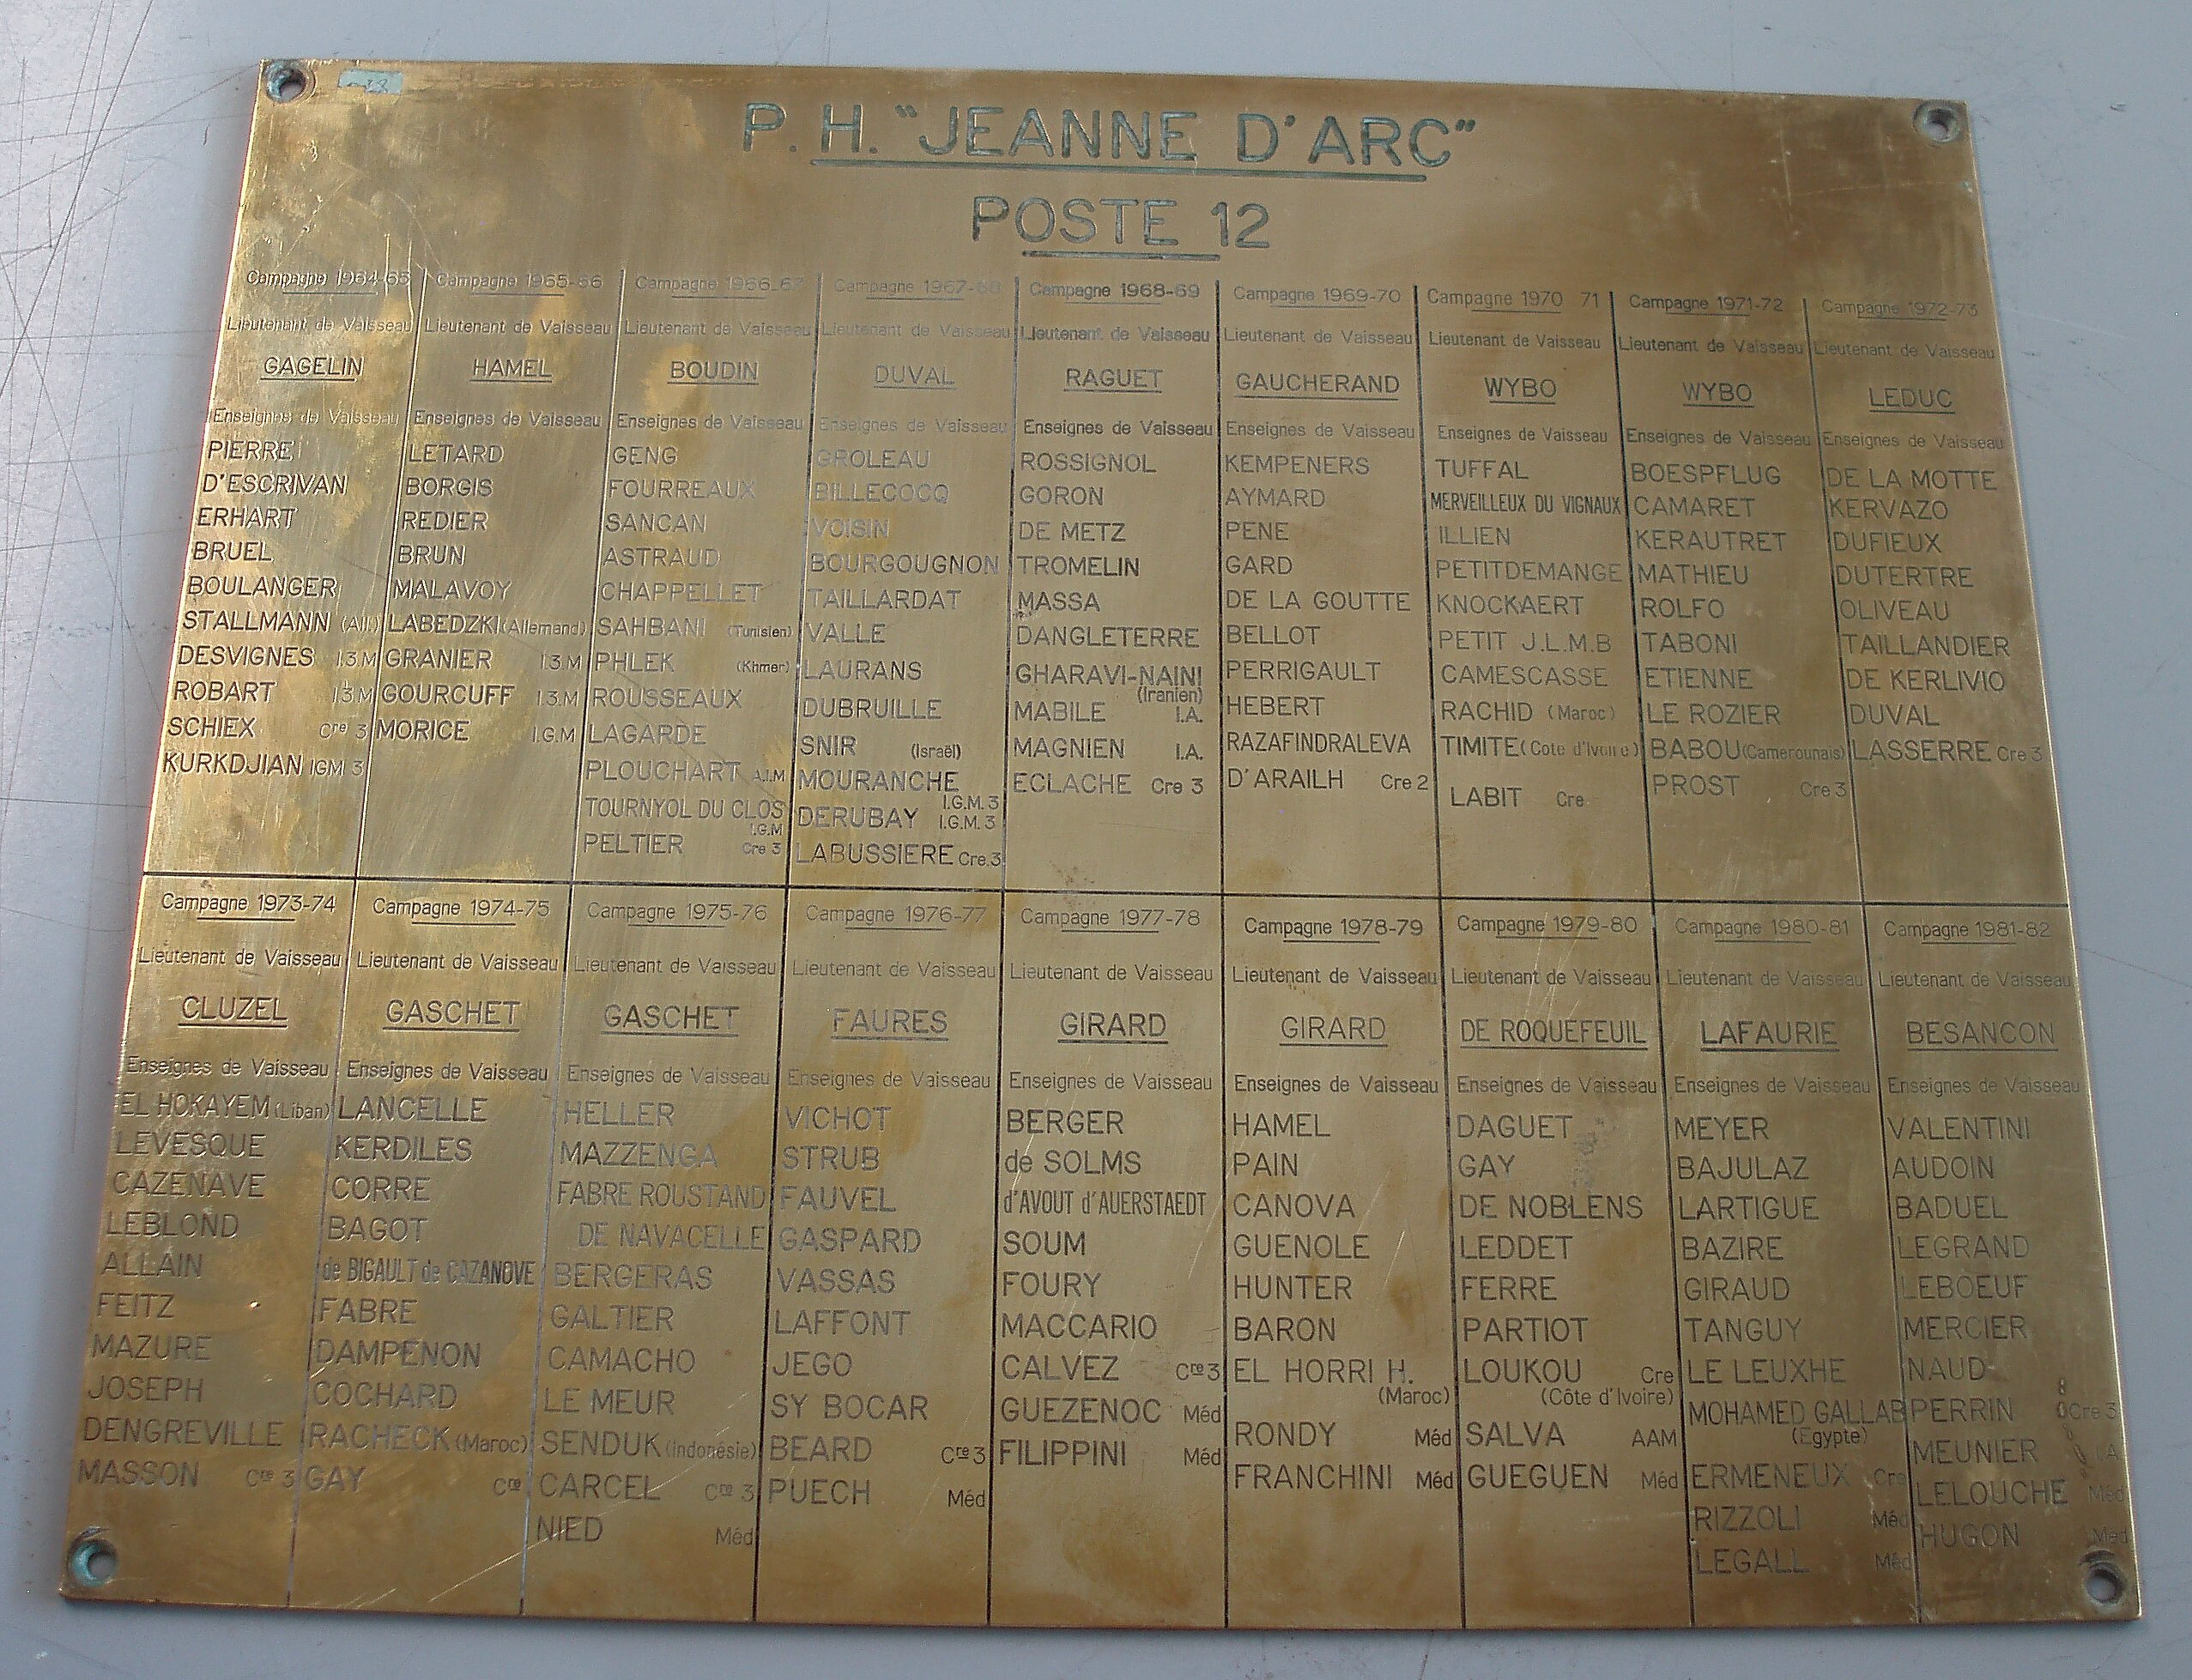 P.H. "JEANNE D'ARC"
POSTE 12
Campagne 1964-65
Lieutenant de Vaisseau
GAGELIN
Enseignes de Vaisseau
PIERRE
D'ESCRIVAN
ERHART
BRUEL
BOULANGER
STALLMANN (All.)
DESVIGNES I.3.M
ROBART I.3.M
SCHIEX Cre 3
KURKDJIAN IGM 3
Campagne 1965-66
Lieutenant de Vaisseau
HAMEL
Enseignes de Vaisseau
LETARD
BORGIS
REDIER
BRUN
MALAVOY
LABEDZKI (Allemand)
GRANIER I.3.M
GOURCUFF I.3.M
MORICE I.G.M
Campagne 1966-67
Lieutenant de Vaisseau
BOUDIN
Enseignes de Vaisseau
GENG
FOURREAUX
SANCAN
ASTRAUD
CHAPPELLET
SAHBANI (Tunisien)
PHLEK (Khmer)
ROUSSEAUX
LAGARDE
PLOUCHART A.I.M
TOURNYOL DU CLOS
I.G.M
PELTIER Cre 3
Campagne 1967-68
Lieutenant de Vaisseau
DUVAL
Enseignes de Vaisseau
GROLEAU
BILLECOCQ
VOISIN
BOURGOUGNON
TAILLARDAT
VALLE
LAURANS
DUBRUILLE
SNIR (Israël)
MOURANCHE
I.G.M. 3
DERUBAY I.G.M. 3
LABUSSIERE Cre.3
Campagne 1968-69
Lieutenant de Vaisseau
RAGUET
Enseignes de Vaisseau
ROSSIGNOL
GORON
DE METZ
TROMELIN
MASSA
DANGLETERRE
GHARAVI-NAINI
(Iranien)
MABILE I.A.
MAGNIEN I.A.
ECLACHE Cre 3
Campagne 1969-70
Lieutenant de Vaisseau
GAUCHERAND
Enseignes de Vaisseau
KEMPENERS
AYMARD
PENE
GARD
DE LA GOUTTE
BELLOT
PERRIGAULT
HEBERT
RAZAFINDRALEVA
D'ARAILH Cre 2
Campagne 1970 71
Lieutenant de Vaisseau
WYBO
Enseignes de Vaisseau
TUFFAL
MERVEILLEUX DU VIGNAUX
ILLIEN
PETITDEMANGE
KNOCKAERT
PETIT J.L.M.B
CAMESCASSE
RACHID (Maroc)
TIMITE (Cote d'Ivoire)
LABIT Cre
Campagne 1971-72
Lieutenant de Vaisseau
WYBO
Enseignes de Vaisseau
BOESPFLUG
CAMARET
KERAUTRET
MATHIEU
ROLFO
TABONI
ETIENNE
LE ROZIER
BABOU (Camerounais)
PROST Cre 3
Campagne 1972-73
Lieutenant de Vaisseau
LEDUC
Enseignes de Vaisseau
DE LA MOTTE
KERVAZO
DUFIEUX
DUTERTRE
OLIVEAU
TAILLANDIER
DE KERLIVIO
DUVAL
LASSERRE Cre 3
Campagne 1973-74
Lieutenant de Vaisseau
CLUZEL
Enseignes de Vaisseau
EL HOKAYEM (Liban)
LEVESQUE
CAZENAVE
LEBLOND
ALLAIN
FEITZ
MAZURE
JOSEPH
DENGREVILLE
MASSON Cre 3
Campagne 1974-75
Lieutenant de Vaisseau
GASCHET
Enseignes de Vaisseau
LANCELLE
KERDILES
CORRE
BAGOT
de BIGAULT de CAZANOVE
FABRE
DAMPENON
COCHARD
RACHECK (Maroc)
GAY Cre
Campagne 1975-76
Lieutenant de Vaisseau
GASCHET
Enseignes de Vaisseau
HELLER
MAZZENGA
FABRE ROUSTAND
DE NAVACELLE
BERGERAS
GALTIER
CAMACHO
LE MEUR
SENDUK (indonésie)
CARCEL Cre 3
NIED Méd
Campagne 1976-77
Lieutenant de Vaisseau
FAURES
Enseignes de Vaisseau
VICHOT
STRUB
FAUVEL
GASPARD
VASSAS
LAFFONT
JEGO
SY BOCAR
BEARD Cre 3
PUECH Méd
Campagne 1977-78
Lieutenant de Vaisseau
GIRARD
Enseignes de Vaisseau
BERGER
de SOLMS
d'AVOUT d'AUERSTAEDT
SOUM
FOURY
MACCARIO
CALVEZ Cre 3
GUEZENOC Méd
FILIPPINI Méd
Campagne 1978-79
Lieutenant de Vaisseau
GIRARD
Enseignes de Vaisseau
HAMEL
PAIN
CANOVA
GUENOLE
HUNTER
BARON
EL HORRI H.
(Maroc)
RONDY Méd
FRANCHINI Méd
Campagne 1979-80
Lieutenant de Vaisseau
DE ROQUEFEUIL
Enseignes de Vaisseau
DAGUET
GAY
DE NOBLENS
LEDDET
FERRE
PARTIOT
LOUKOU Cre
(Côte d'Ivoire)
SALVA AAM
GUEGUEN Méd
Campagne 1980-81
Lieutenant de Vaisseau
LAFAURIE
Enseignes de Vaisseau
MEYER
BAJULAZ
LARTIGUE
BAZIRE
GIRAUD
TANGUY
LE LEUXHE
MOHAMED GALLAB
(Egypte)
ERMENEUX Cre
RIZZOLI Méd
LEGALL Méd
Campagne 1981-82
Lieutenant de Vaisseau
BESANCON
Enseignes de Vaisseau
VALENTINI
AUDOIN
BADUEL
LEGRAND
LEBOEUF
MERCIER
NAUD
PERRIN Cre 3
MEUNIER I.A
LELOUCHE Méd
HUGON Méd